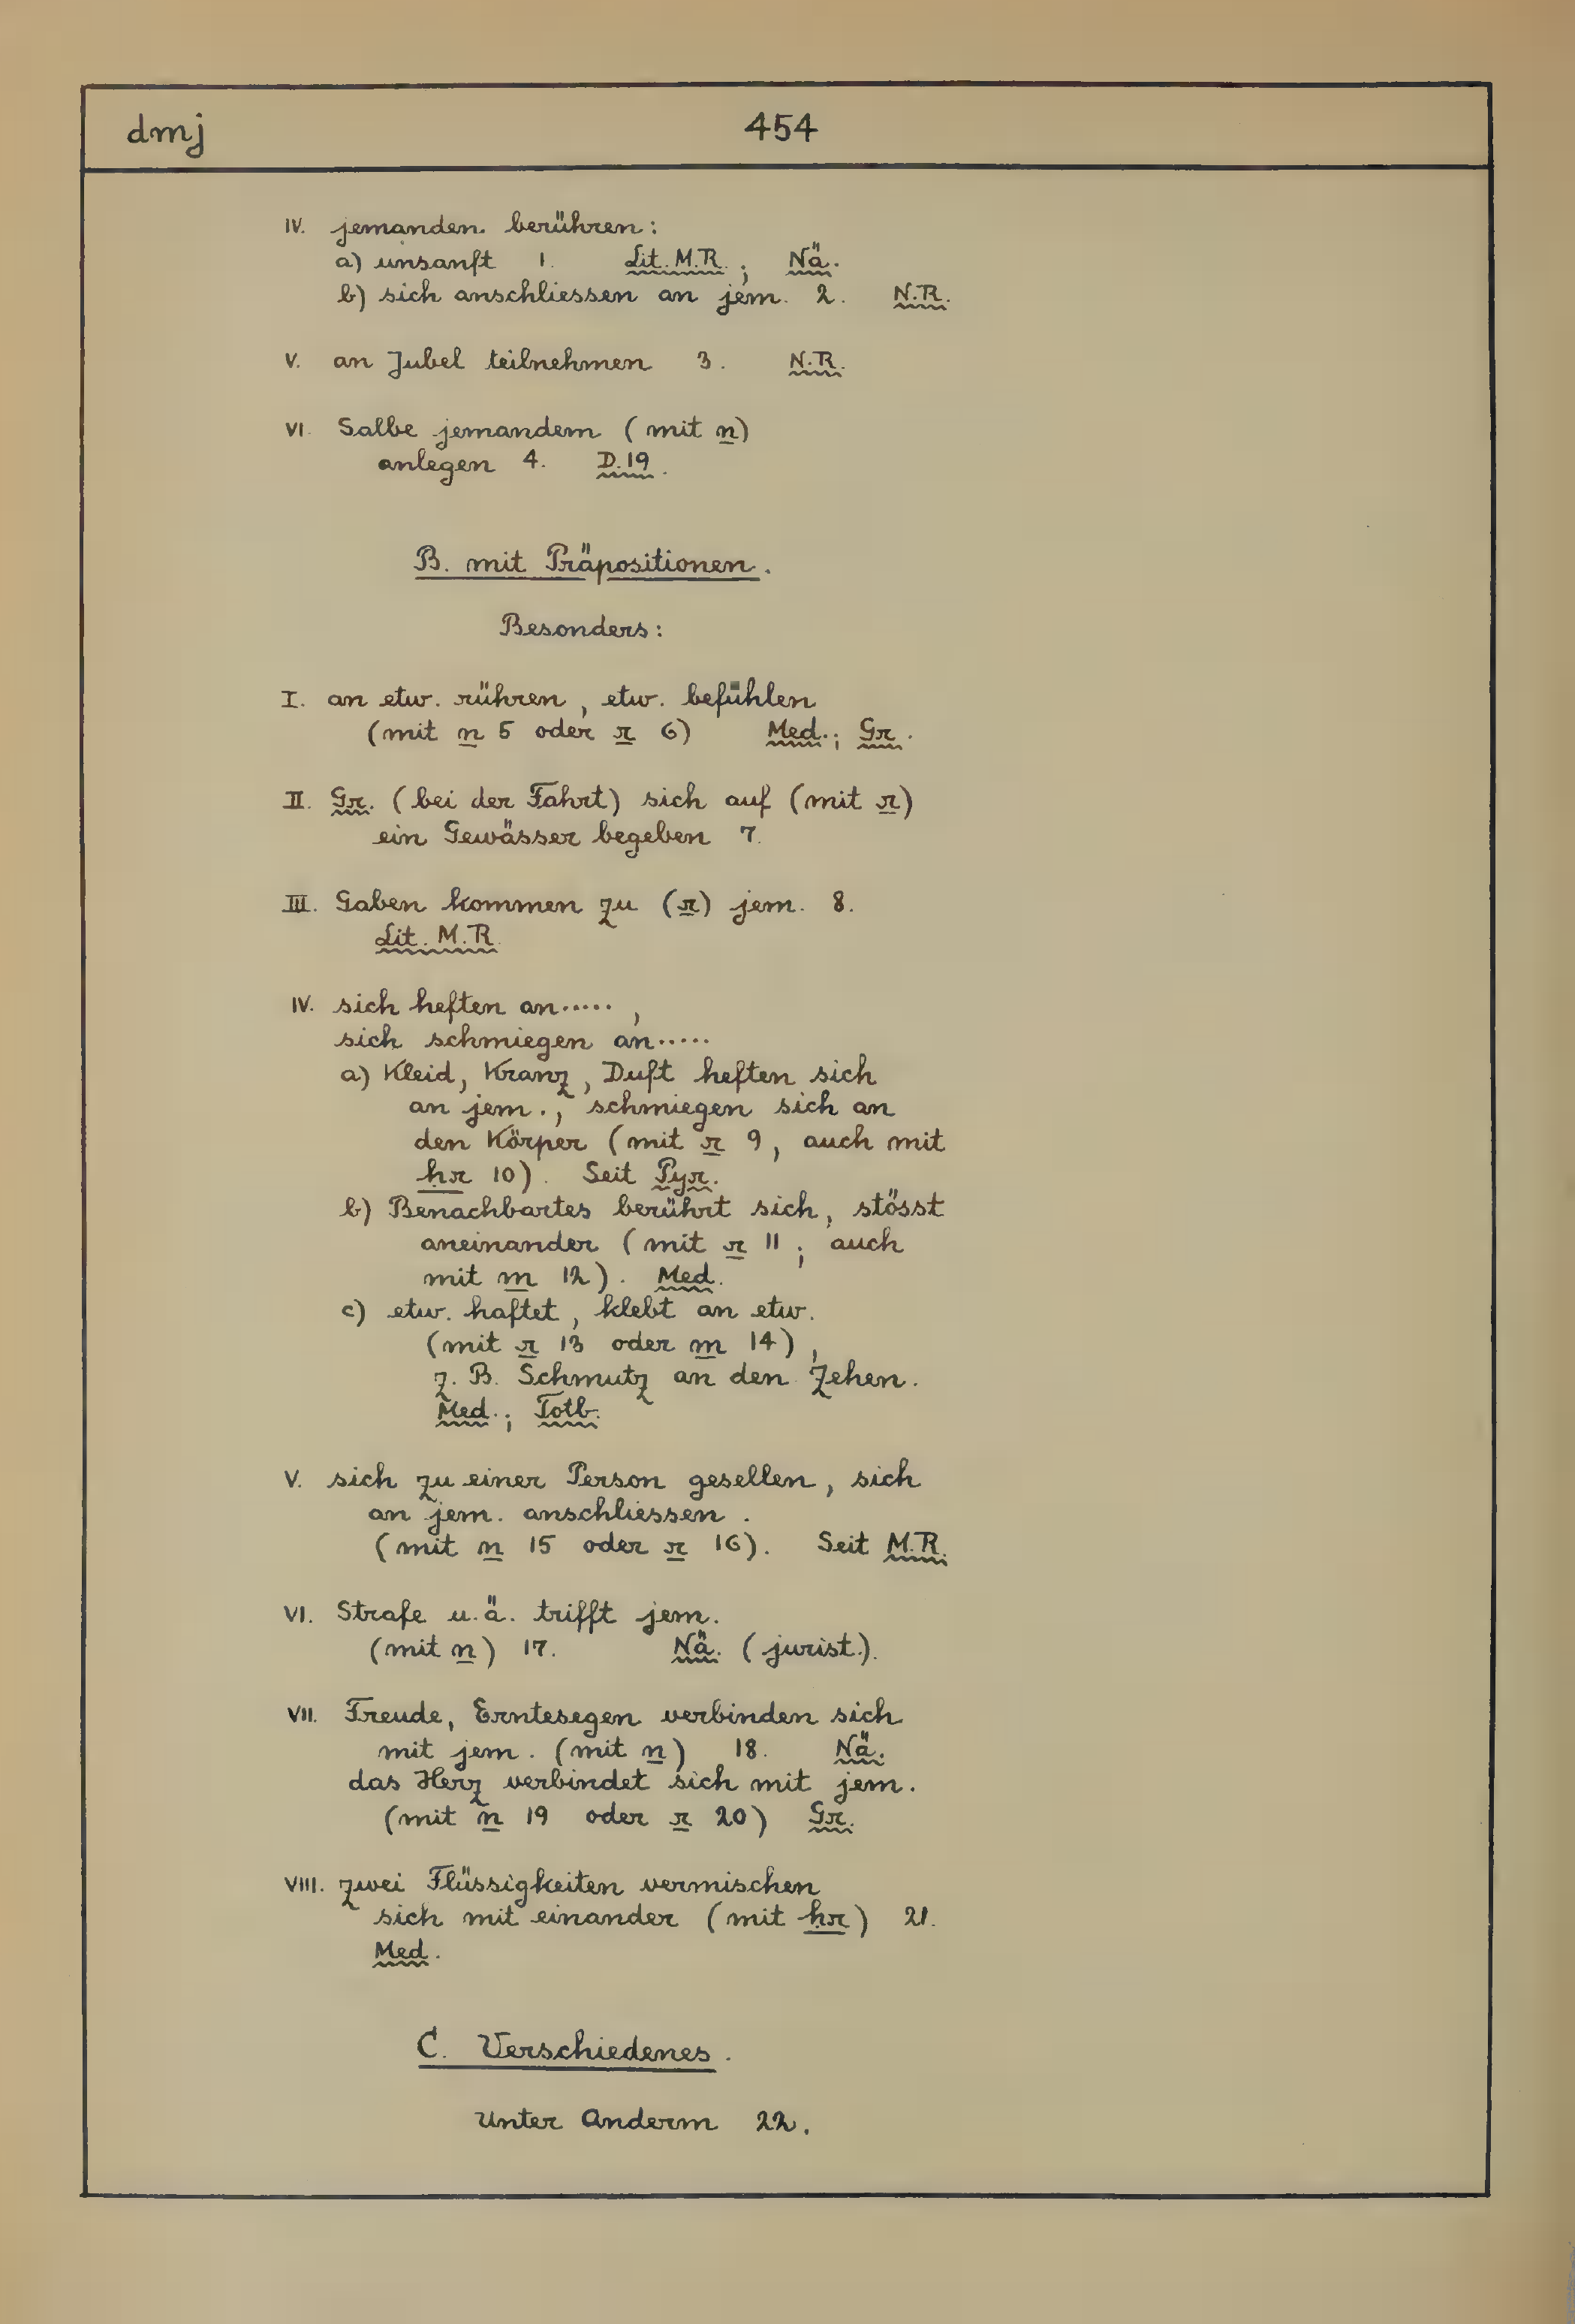 dmj 454
IV. jemanden berühren:
a) unsanft 1. Lit. M.R.; Nä.
b) sich anschliessen an jem. 2. N.R.
V. an Jubel teilnehmen 3. N.R.
VI. Salbe jemandem (mit n)
anlegen 4. D.19.
B. mit Präpositionen.
Besonders:
I. an etw. rühren, etw. befühlen
(mit n 5 oder r 6) Med.; Gr.
II. Gr. (bei der Fahrt) sich auf (mit r)
ein Gewässer begeben 7.
III. Gaben kommen zu (r) jem. 8.
Lit. M.R.
IV. sich heften an.....,
sich schmiegen an.....
a) Kleid, Kranz, Duft heften sich
an jem., schmiegen sich an
den Körper (mit r 9, auch mit
ḥr 10). Seit Pyr.
b) Benachbartes berührt sich, stösst
aneinander (mit r 11; auch
mit m 12). Med.
c) etw. haftet, klebt an etw.
(mit r 13 oder m 14),
z. B. Schmutz an den Zehen.
Med.; Totb.
V. sich zu einer Person gesellen, sich
an jem. anschliessen.
(mit n 15 oder r 16). Seit M.R.
VI. Strafe u.ä. trifft jem.
(mit n) 17. Nä. (jurist.).
VII. Freude, Erntesegen verbinden sich
mit jem. (mit n) 18. Nä.
das Herz verbindet sich mit jem.
(mit n 19 oder r 20) Gr.
VIII. zwei Flüssigkeiten vermischen
sich mit einander (mit ḥr) 21.
Med.
C. Verschiedenes.
Unter Anderm 22.